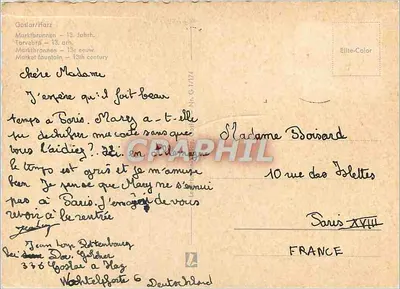 Goslar/Harz
Marktbrunnen – 13. Jahrh.
Torvebrø – 13. årh.
Marktbronnen – 13e eeuw
Market fountain – 13th century
Elite-Color
Chère Madame
J'espère qu'il fait beau
temps a Paris. Mary a-t-elle
pu dechifrer ma carte sans que
vous l'aidiez?. Ici en Allemagne
le temps est gris et je m'amuse
bien Je pense que Mary ne s'ennui
pas à Paris. J'en de vous
revoir à la rentrée
Jean
bei Goldner
336 Goslar a Haz
Wachtelpforte 6 Deutschland
Madame Boisard
10 rue des Islettes
Paris XVIII
FRANCE
CPAPHIL